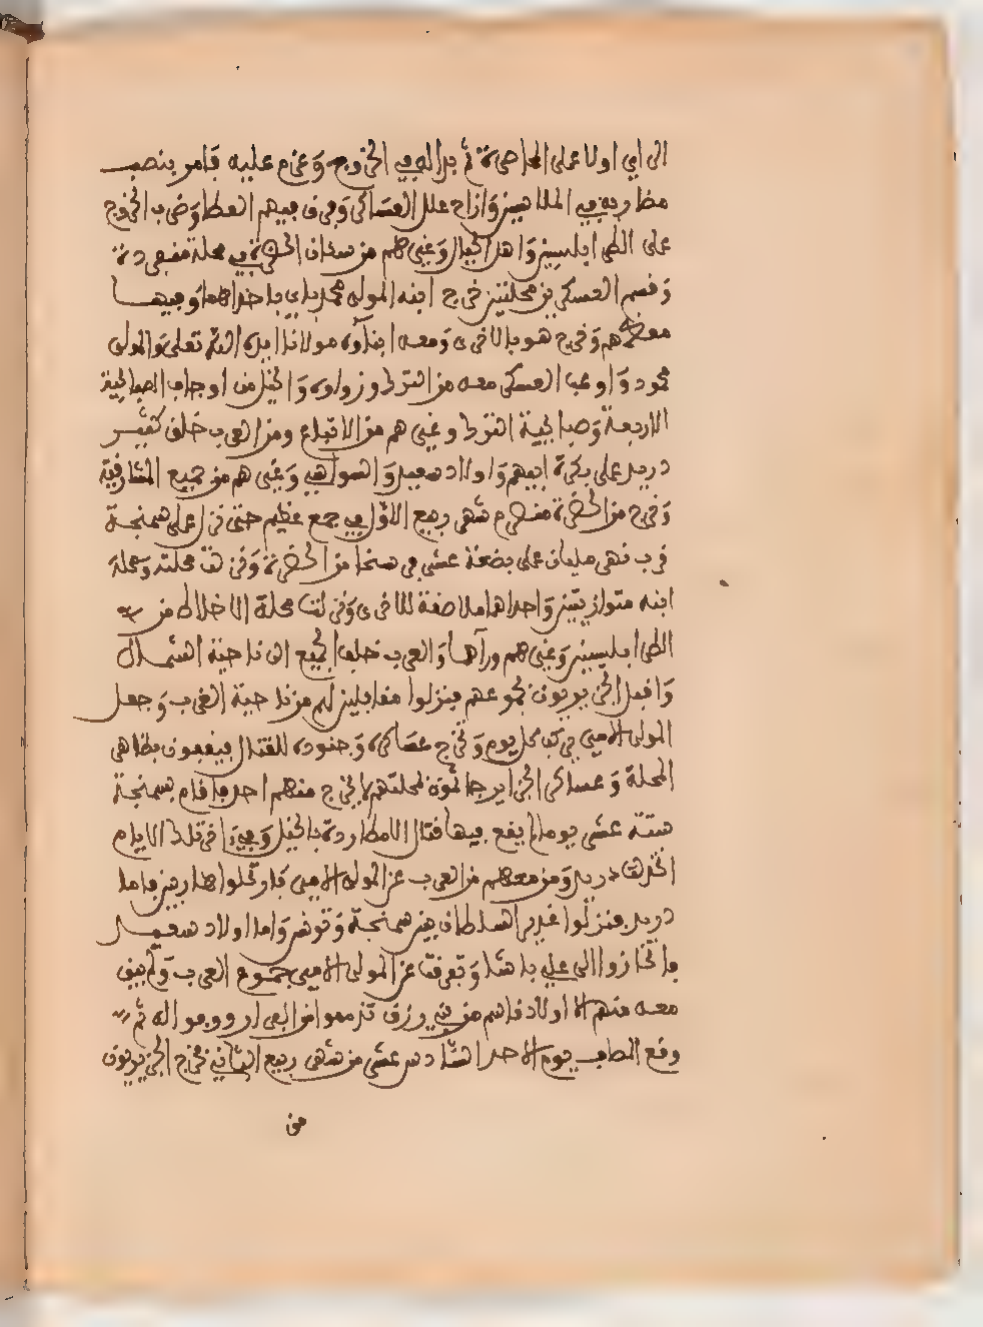 الراي اولا على المحاصرة ثم بدا له في الخروج وعزم عليه فامر بنصب
مضاربه في الملاسين وازاح علل العساكر وفرق فيهم العطا وضرب الخروج
على الطرابلسيين واهل الجبال وغيرهم من سكان الحضرة في محلة منفردة
وقسم العسكر بين محلتين خرج ابنه المولى محمد باي باحداهما وفيها
معظمهم وخرج هو بالاخرى ومعه ابناؤه مولانا ايده الله تعلى والمولى
محمود و العسكر معه من الترك وزواوة والخيل من اوجاق الصبايحية
الاربعة وصبايحية الترك وغيرهم من الاتباع ومن العرب خلق كثير
دريد على بكرة ابيهم واولاد سعيد والسواسي وغيرهم من جميع المشارقية
وخرج من الحضرة منصرم شهر ربيع الاول في جمع عظيم حتى نزل على سمنجة
قرب نهر مليان على بضعة عشر فرسخا من الحضرة ونزلت محلته ومحلة
ابنه متوازيتين واحداهما ملاصقة للاخرى ونزلت محلة الاخلاط من
الطرابلسيين وغيرهم ورآها والعرب خلف الجميع الى ناحية الشمال
واقبل الجزيريون بجموعهم فنزلوا مقابلين لهم من ناحية الغرب وجعل
المولى الامير يركب كل يوم وتخرج عساكره وجنوده للقتال فيقفون بظاهر
المحلة وعساكر الجزاير جاثمون بمحلتهم لا يخرج منهم احد فاقام بسمنجة
ستة عشر يوما لم يقع فيها قتال الا مطاردة بالخيل وفي اخر تلك الايام
انخزلت دريد ومن معهم من العرب عن المولى الامير فارتحلوا هاربين فاما
دريد فنزلوا غدير السلطان بين سمنجة وتونس واما اولاد سعيد
فانحازوا الى علي باشا وتفرقت عن المولى الامير جموع العرب ولم يبق
معه منهم الا اولاد من رزق تذمموا من الفرار ووفوا له ثم
وقع المصاف يوم الاحد السادس عشر من شهر ربيع الثاني فخرج الجزيريون
من